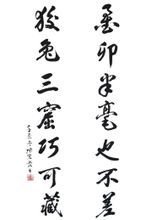 卯半毫也不差
狡兔三窟巧可藏